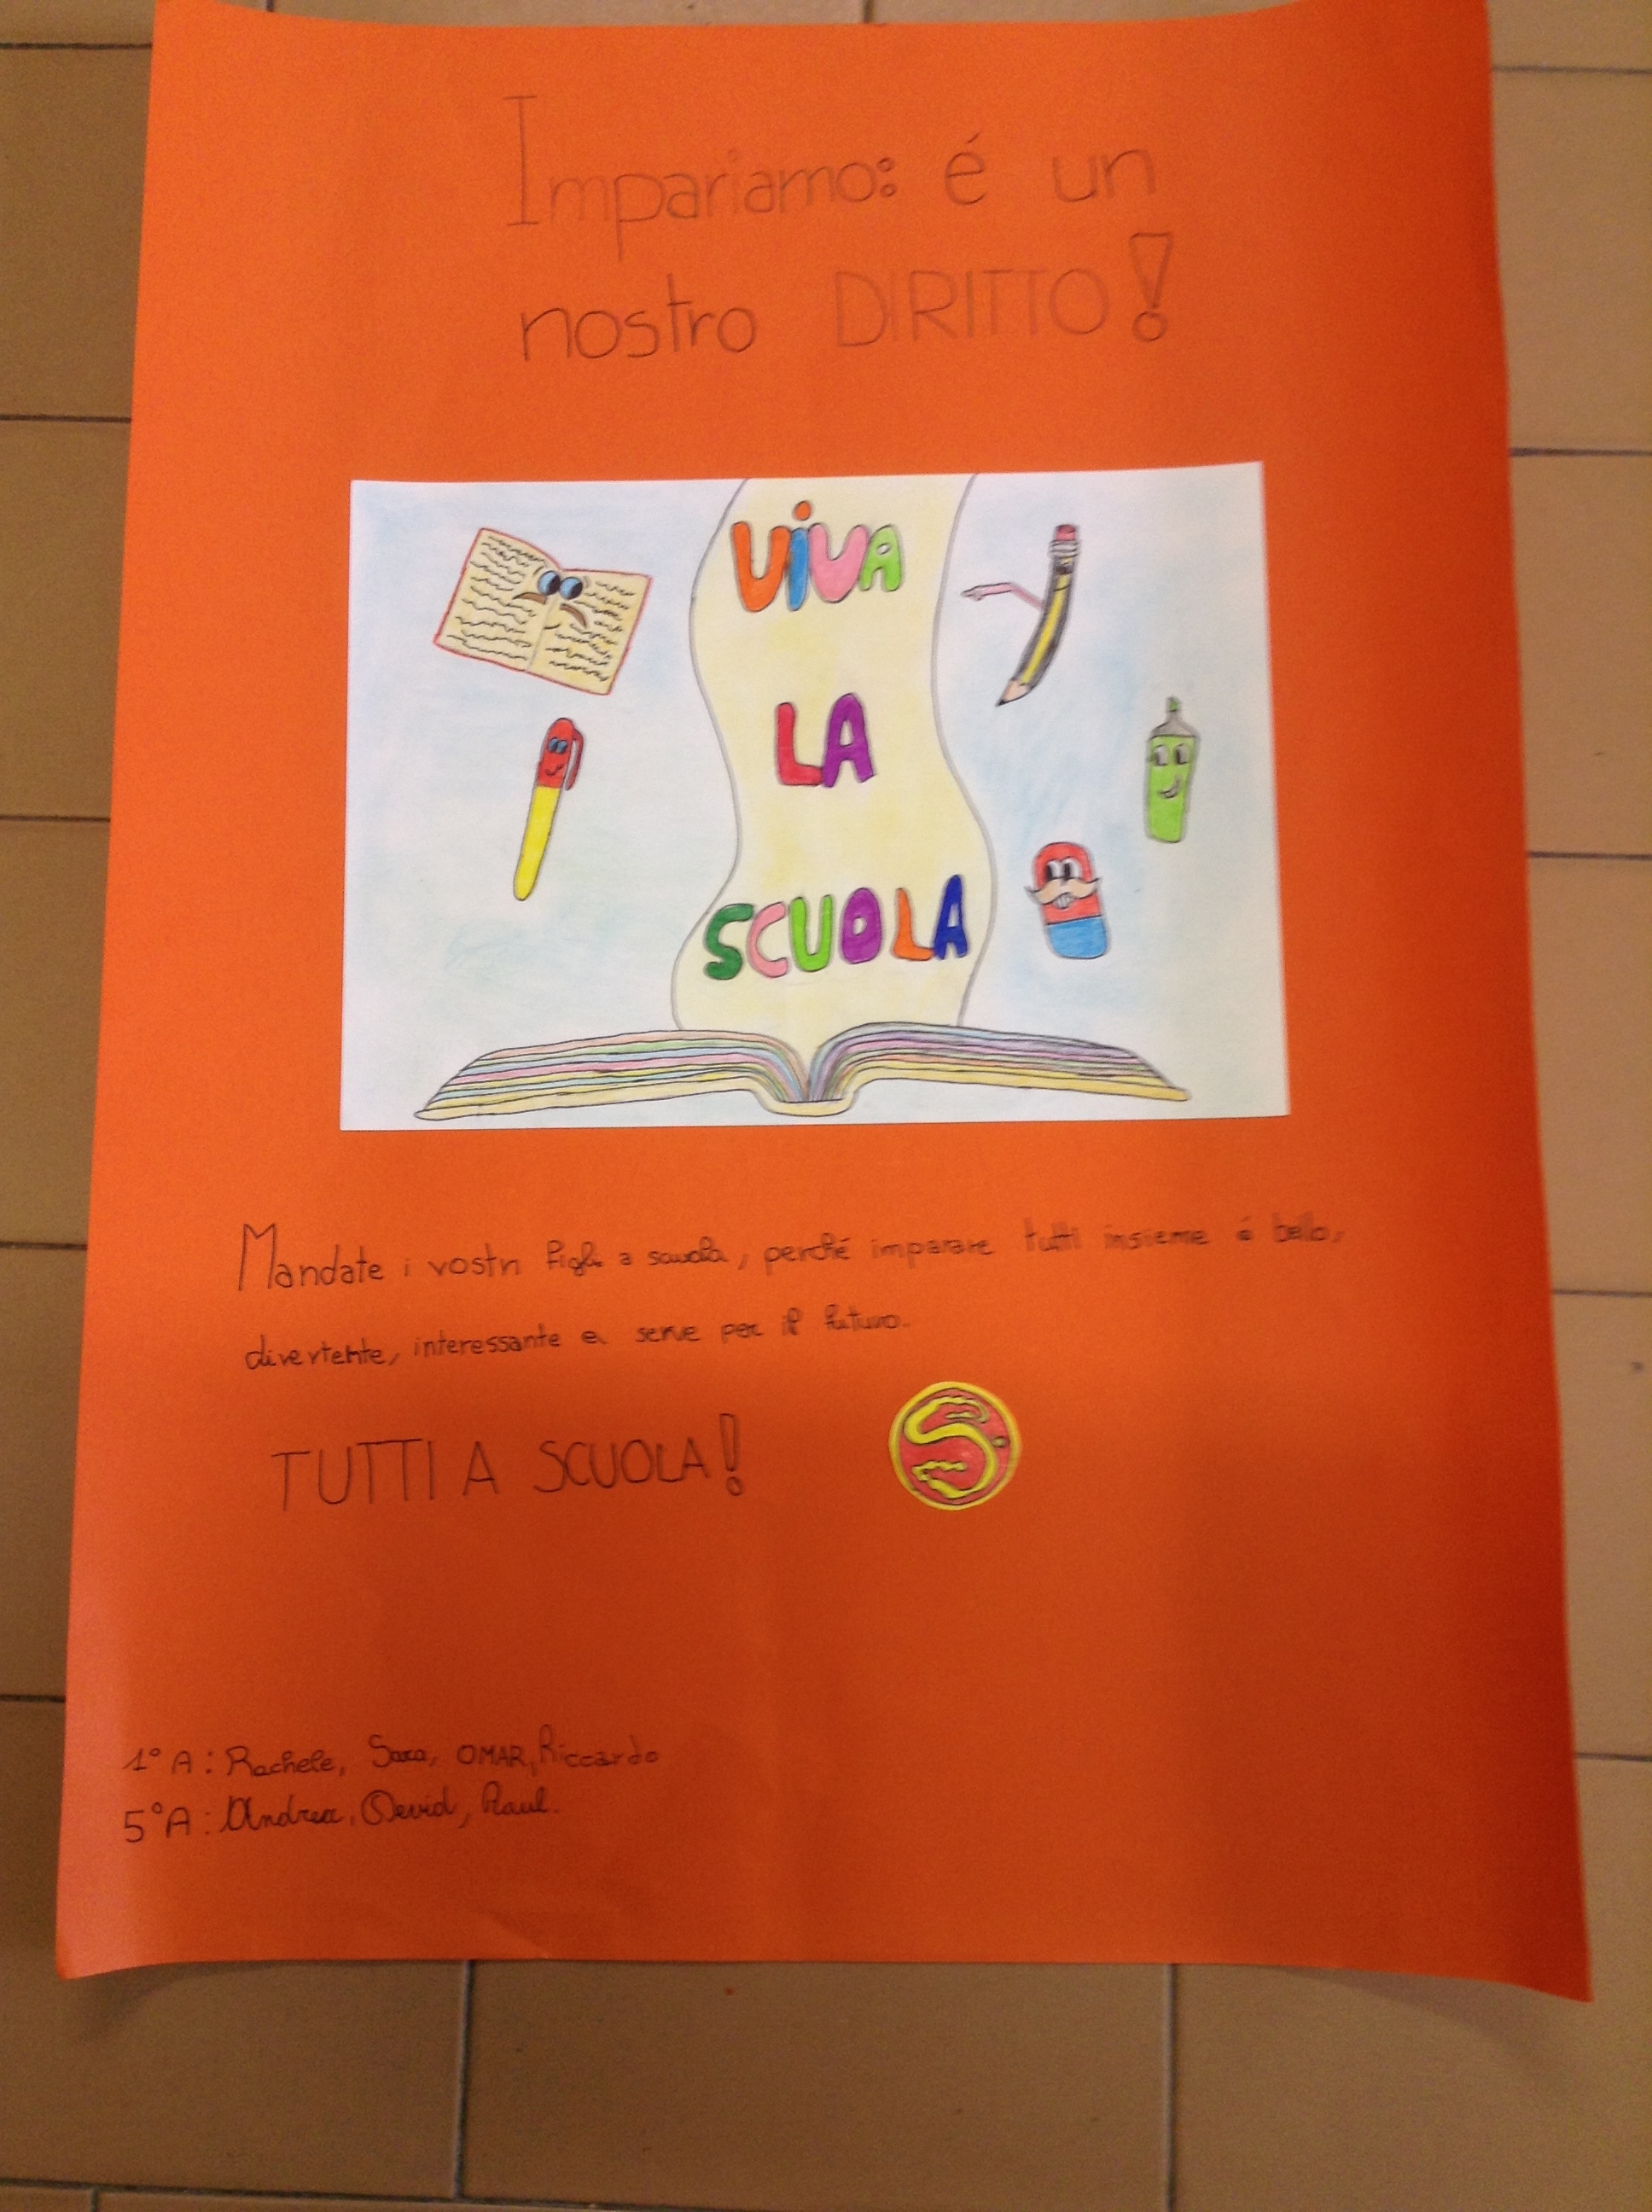 Impariamo: é un
nostro DIRITTO!
ViVA
LA
SCUOLA
Mandate i vostri figli a scuola, perché imparare tutti insieme é bello,
divertente, interessante e serve per il futuro.
TUTTI A SCUOLA!
S
1° A: Rachele, Sara, OMAR, Riccardo
5°A: Andrea, Devid, Raul.